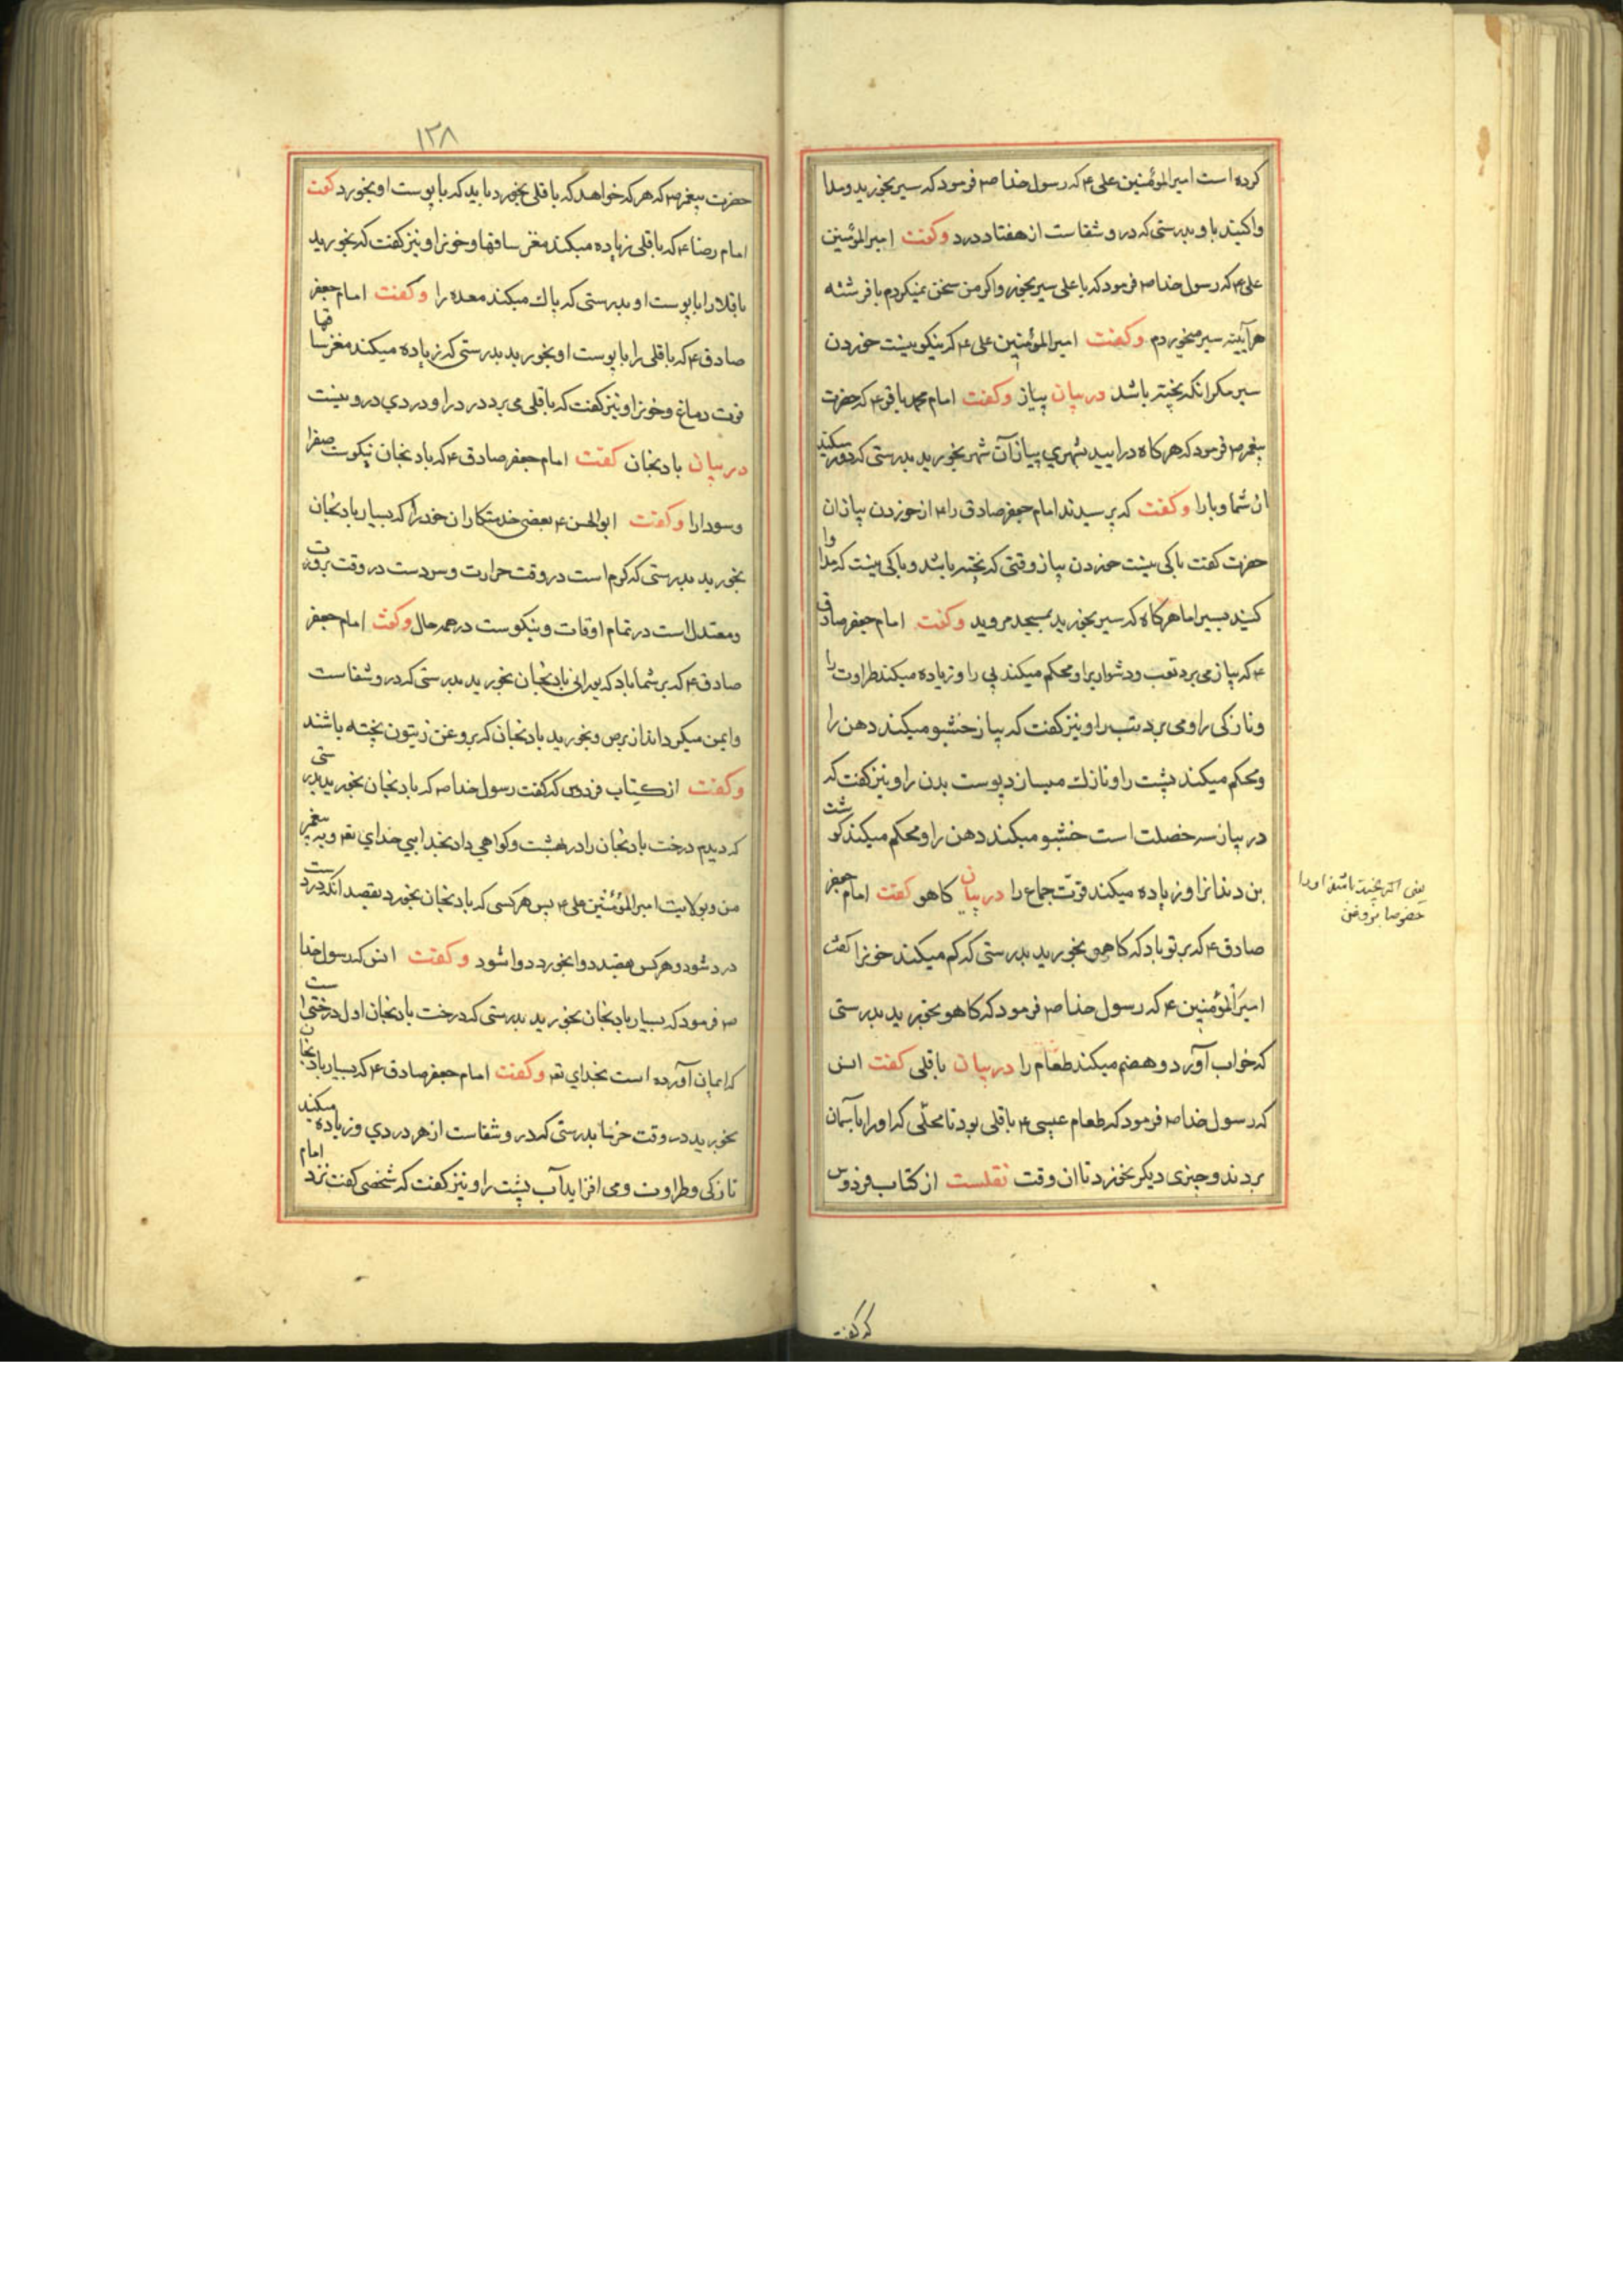 کرده است امیرالمؤمنین علی ۴ که رسول خدا صم فرمود که سیر بخورید و مدا
واکنید باو بدرستی که درو شفاست از هفتاد درد وکفت امیرالمؤمنین
علی ۴ که رسول خدا صم فرمود که یا علی سیر بخور و اکر من سخن نمیکردم با فرشته
هرآینه سیر میخوردم وکفت امیرالمؤمنین علی ۴ که نیکو نیست خوردن
سیر مکر انکه پخته باشد در بیان پیاز وکفت امام محمد باقر ۴ که حضرت
پیغمبر صم فرمود که هرکاه درایید بشهری پیاز آن شهر بخورید بدرستی که دور میکند
از شما وبا را وکفت که پرسیدند امام جعفر صادق را ۴ از خوردن پیاز ان
حضرت کفت باکی نیست خوردن پیاز وقتی که پخته باشد و باکی نیست که مداوا
کنید بسیر اما هرکاه که سیر بخورید بمسجد مروید وکفت امام جعفر صادق
۴ که پیاز می برد تعب و دشواریرا و محکم میکند پی را و زیاده میکند طراوت را
و نازکی را و می برد تب را و نیز کفت که پیاز خشبو میکند دهن را
و محکم میکند پشت را و نازك میسازد پوست بدن را و نیز کفت که
در پیاز سه خصلت است خشبو میکند دهن را و محکم میکند کوشت
بن دندانرا و زیاده میکند قوّت جماع را در بیان کاهو کفت امام جعفر
صادق ۴ که بر تو باد که کاهو بخورید بدرستی که کم میکند خونرا کفت
امیرالمؤمنین ۴ که رسول خدا صم فرمود که کاهو بخورید بدرستی
که خواب آورد و هضم میکند طعام را در بیان باقلی کفت انس
که رسول خدا صم فرمود که طعام عیسی ۴ باقلی بود تا محلّی که او را بآسمان
بردند و چیزی دیکر نخورد تا ان وقت نقلست از کتاب فردوس
که کفت
یعنی اکر پخته باشند او را
خصوصا بروغن
۱۲۸
حضرت پیغمبر صم که هرکه خواهد که باقلی بخورد باید که با پوست او بخورد کفت
امام رضا ۴ که باقلی زیاده میکند مغز ساقها و خونرا و نیز کفت که بخورید
باقلا را با پوست او بدرستی که پاك میکند معده را وکفت امام جعفر
صادق ۴ که باقلی را با پوست او بخورید بدرستی که زیاده میکند مغز ساقها
قوت دماغ و خونرا و نیز کفت که باقلی می برد درد را و دردی درو نیست
در بیان بادنجان کفت امام جعفر صادق ۴ که بادنجان نیکوست صفرا
و سودا را وکفت ابوالحسن ۴ بعضی خدمتکاران خود را که بسیار بادنجان
بخورید بدرستی که کرم است در وقت حرارت و سردست در وقت برودت
و معتدل است در تمام اوقات و نیکوست در همه حال وکفت امام جعفر
صادق ۴ که بر شما باد که بورانی بادنجان بخورید بدرستی که درو شفاست
و ایمن میکرداند از برص و بخورید بادنجان که بروغن زیتون پخته باشند
وکفت از کتاب فردوس که کفت رسول خدا صم که بادنجان بخورید بدرستی
که دیدم درخت بادنجان را در بهشت و کواهی داد بخدایی خدای تعم و به پیغمبر
من و بولایت امیرالمؤمنین علی ۴ پس هرکسی که بادنجان بخورد بقصد انکه دردست
درد شود و هرکس بقصد دوا بخورد دوا شود وکفت انس که رسول خدا
صم فرمود که بسیار بادنجان بخورید بدرستی که درخت بادنجان اول درختی است
که ایمان آورده است بخدای تعم وکفت امام جعفر صادق ۴ که بسیار بادنجان
بخورید در وقت خرما بدرستی که درو شفاست از هر دردی و زیاده میکند
نازکی و طراوت و می افزاید آب پشت را و نیز کفت که شخصی کفت نزد امام